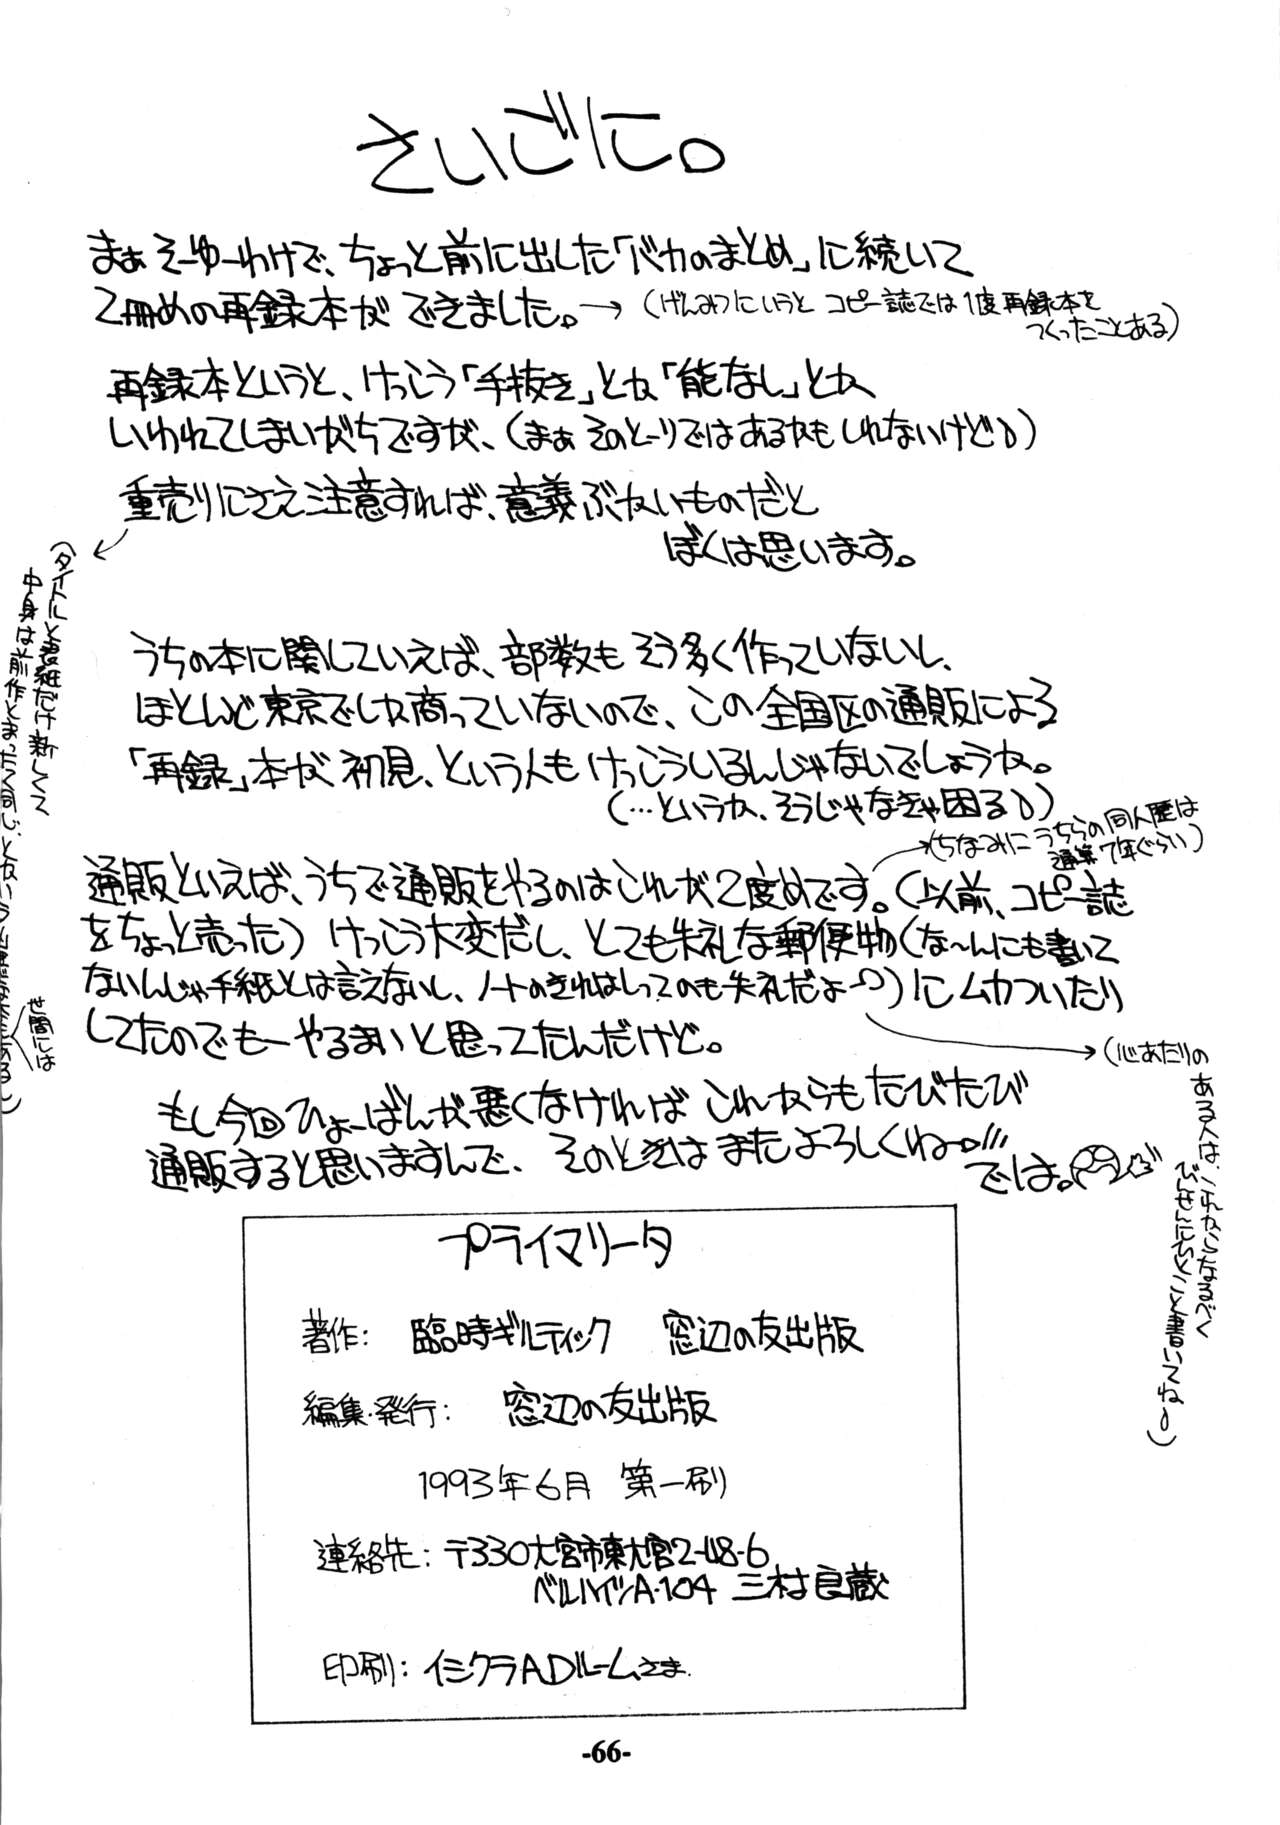 さいごに。
まぁそーゆーわけで、ちょっと前に出した「バカのまとめ」に続いて
2冊めの再録本ができました。→(げんみつにいうと コピー誌では1度再録本を
つくったことある)
再録本というと、けっこう「手抜き」とか「能なし」とか
いわれてしまいがちですが、(まぁ そのとーりではあるかもしれないけど)
重売りにさえ注意すれば、意義ぶかいものだと
ぼくは思います。
(タイトルと表紙だけ新しくて
中身は前作とまったく同じ、とかいう
世間には
うちの本に関していえば、部数もそう多く作っていないし、
ほとんど東京でしか商っていないので、この全国区の通販による
「再録」本が初見、という人もけっこういるんじゃないでしょうか。
(…というか、そうじゃなきゃ困る)
(ちなみに うちらの同人歴は
通算7年ぐらい)
通販といえば、うちで通販をやるのはこれが2度めです。(以前、コピー誌
をちょっと売った) けっこう大変だし、とても失礼な郵便物(な〜んにも書いて
ないんじゃ手紙とは言えないし、ノートのきれはしってのも失礼だよ〜)にムカついたり
してたのでもーやるまいと思ってたんだけど。
(心あたりの
ある人は、これからなるべく
びんせんにひとこと書いてね)
もし今回ひょーばんが悪くなければ これからもたびたび
通販すると思いますんで、そのときはまたよろしくねー。
では。
プライマリータ
著作: 臨時ギルティック 窓辺の友出版
編集・発行: 窓辺の友出版
1993年6月 第一刷
連絡先: 〒330大宮市東大宮2-48-6
ベルハイツA-104 三村良蔵
印刷: イシクラADルームさま
-66-